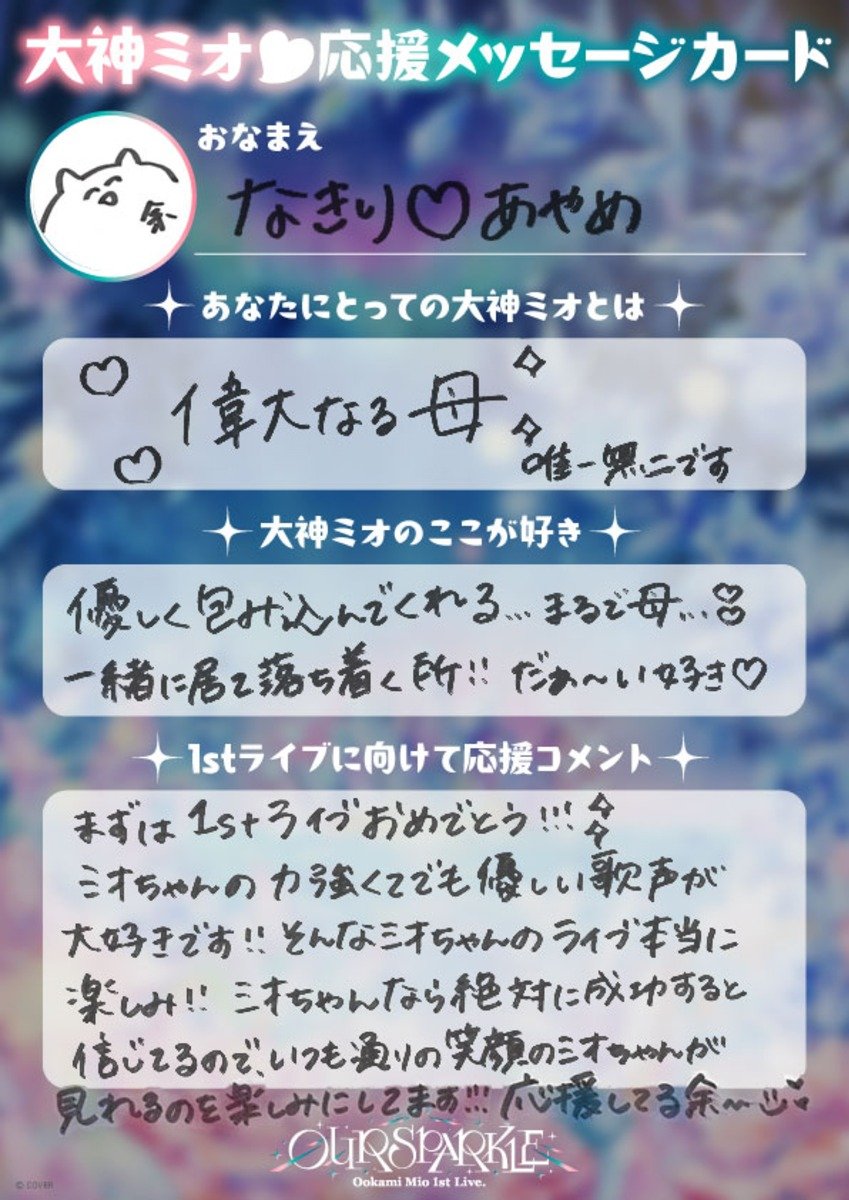 大神ミオ♥応援メッセージカード
おなまえ
余
なきり♡あやめ
あなたにとっての大神ミオとは
偉大なる母
唯一無二です
大神ミオのここが好き
優しく包み込んでくれる…まるで母…
一緒に居て落ち着く所!! だぁ〜い好き♡
1stライブに向けて応援コメント
まずは1stライブおめでとう!!!
ミオちゃんの力強くてでも優しい歌声が
大好きです!! そんなミオちゃんのライブ本当に
楽しみ!! ミオちゃんなら絶対に成功すると
信じてるので、いつも通りの笑顔のミオちゃんが
見れるのを楽しみにしてます!!! 応援してる余〜
OUR SPARKLE
Ookami Mio 1st Live.
© COVER